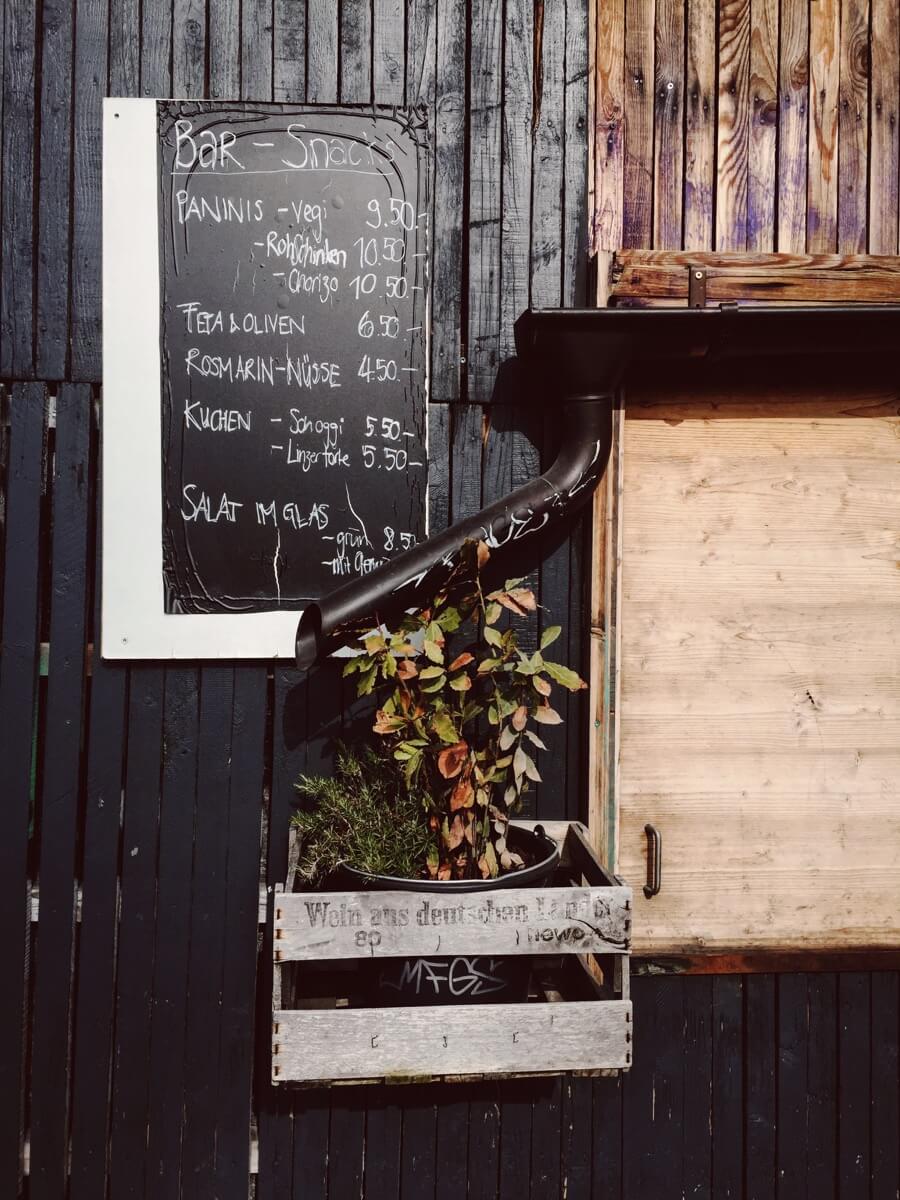 BAR - Snacks
PANINIS - Vegi 9.50.-
- Rohschinken 10.50.-
- Chorizo 10.50.-
FETA & OLIVEN 6.50.-
ROSMARIN-NÜSSE 4.50.-
KUCHEN - Schoggi 5.50.-
- Linzertorte 5.50.-
SALAT IM GLAS
- grün 8.50
- mit
Wein aus deutschen
80
MFGS